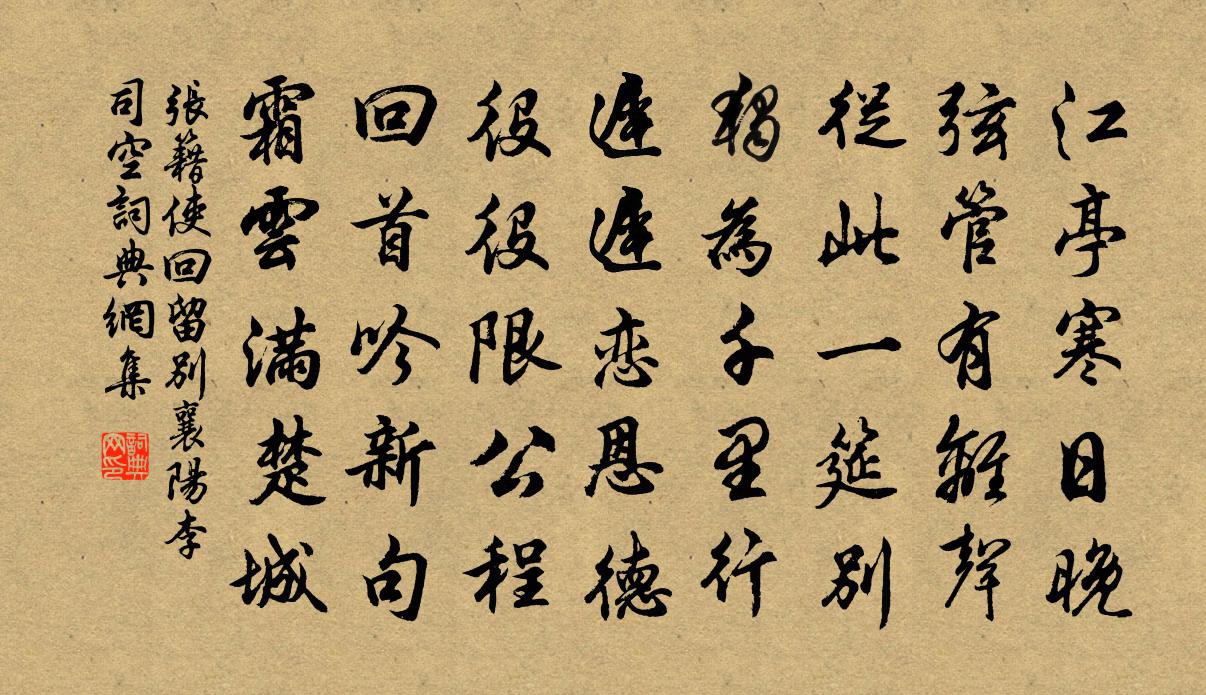 江亭寒日晚
弦管有離聲
從此一筵別
獨為千里行
遲遲恋恩德
役役限公程
回首吟新句
霜雲滿楚城
張籍使回留別襄陽李
司空詞典網集
詞典
网印